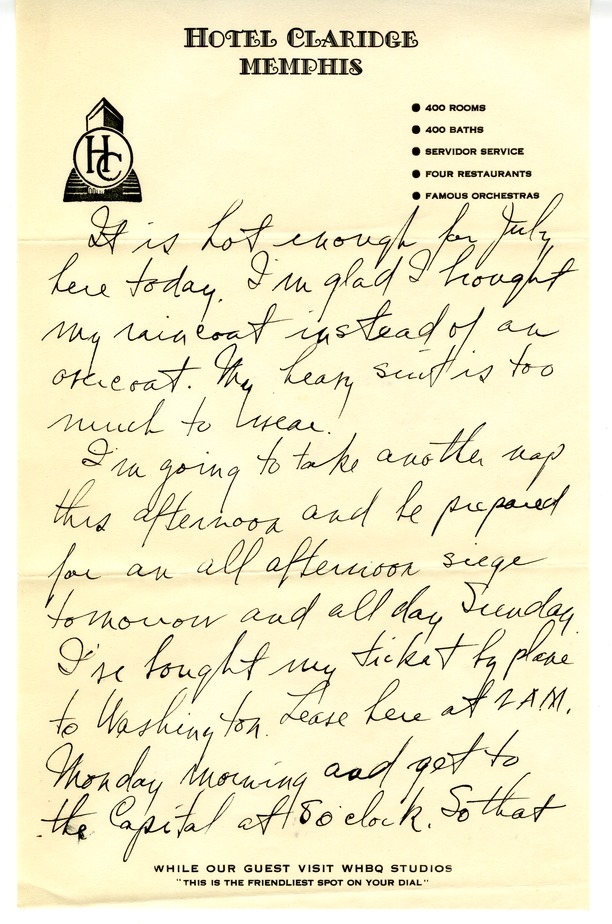 HOTEL CLARIDGE
MEMPHIS
HC
400 ROOMS
400 BATHS
SERVIDOR SERVICE
FOUR RESTAURANTS
FAMOUS ORCHESTRAS
It is hot enough for July
here today. I'm glad I bought
my raincoat instead of an
overcoat. My heavy suit is too
much to wear.
I'm going to take another nap
this afternoon and be prepared
for an all afternoon siege
tomorrow and all day Sunday.
I've bought my ticket by plane
to Washington. Lease here at 2 A.M.
Monday morning and get to
the Capital at 8 o'clock. So that
WHILE OUR GUEST VISIT WHBQ STUDIOS
"THIS IS THE FRIENDLIEST SPOT ON YOUR DIAL"